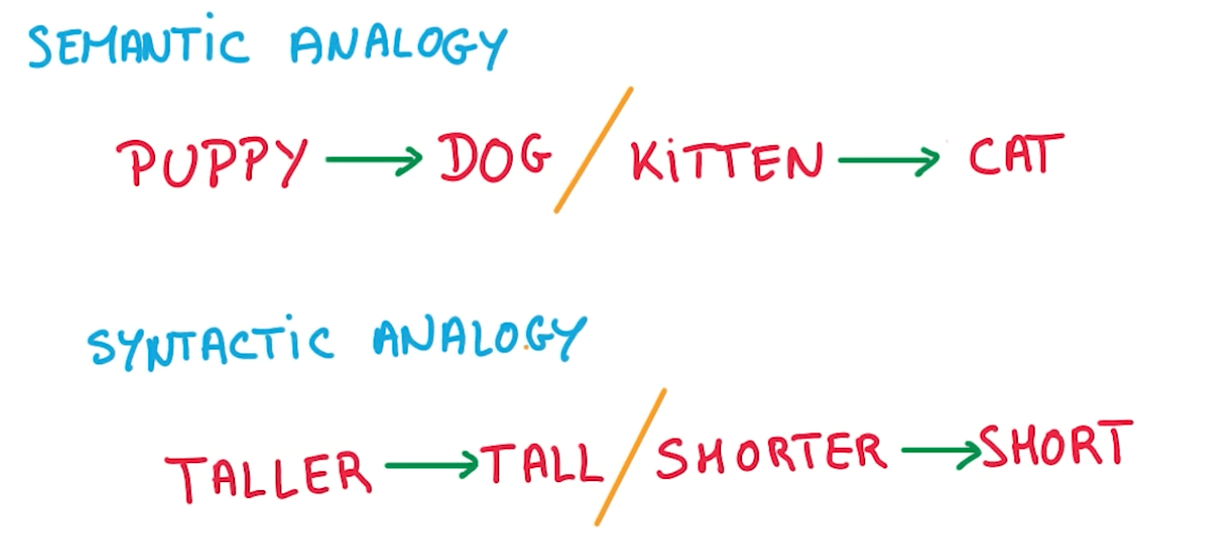 SEMANTiC ANALOGY
PUPPY → DOG / KiTTEN → CAT
SYNTACTiC ANALOGY
TALLER → TALL / SHORTER → SHORT